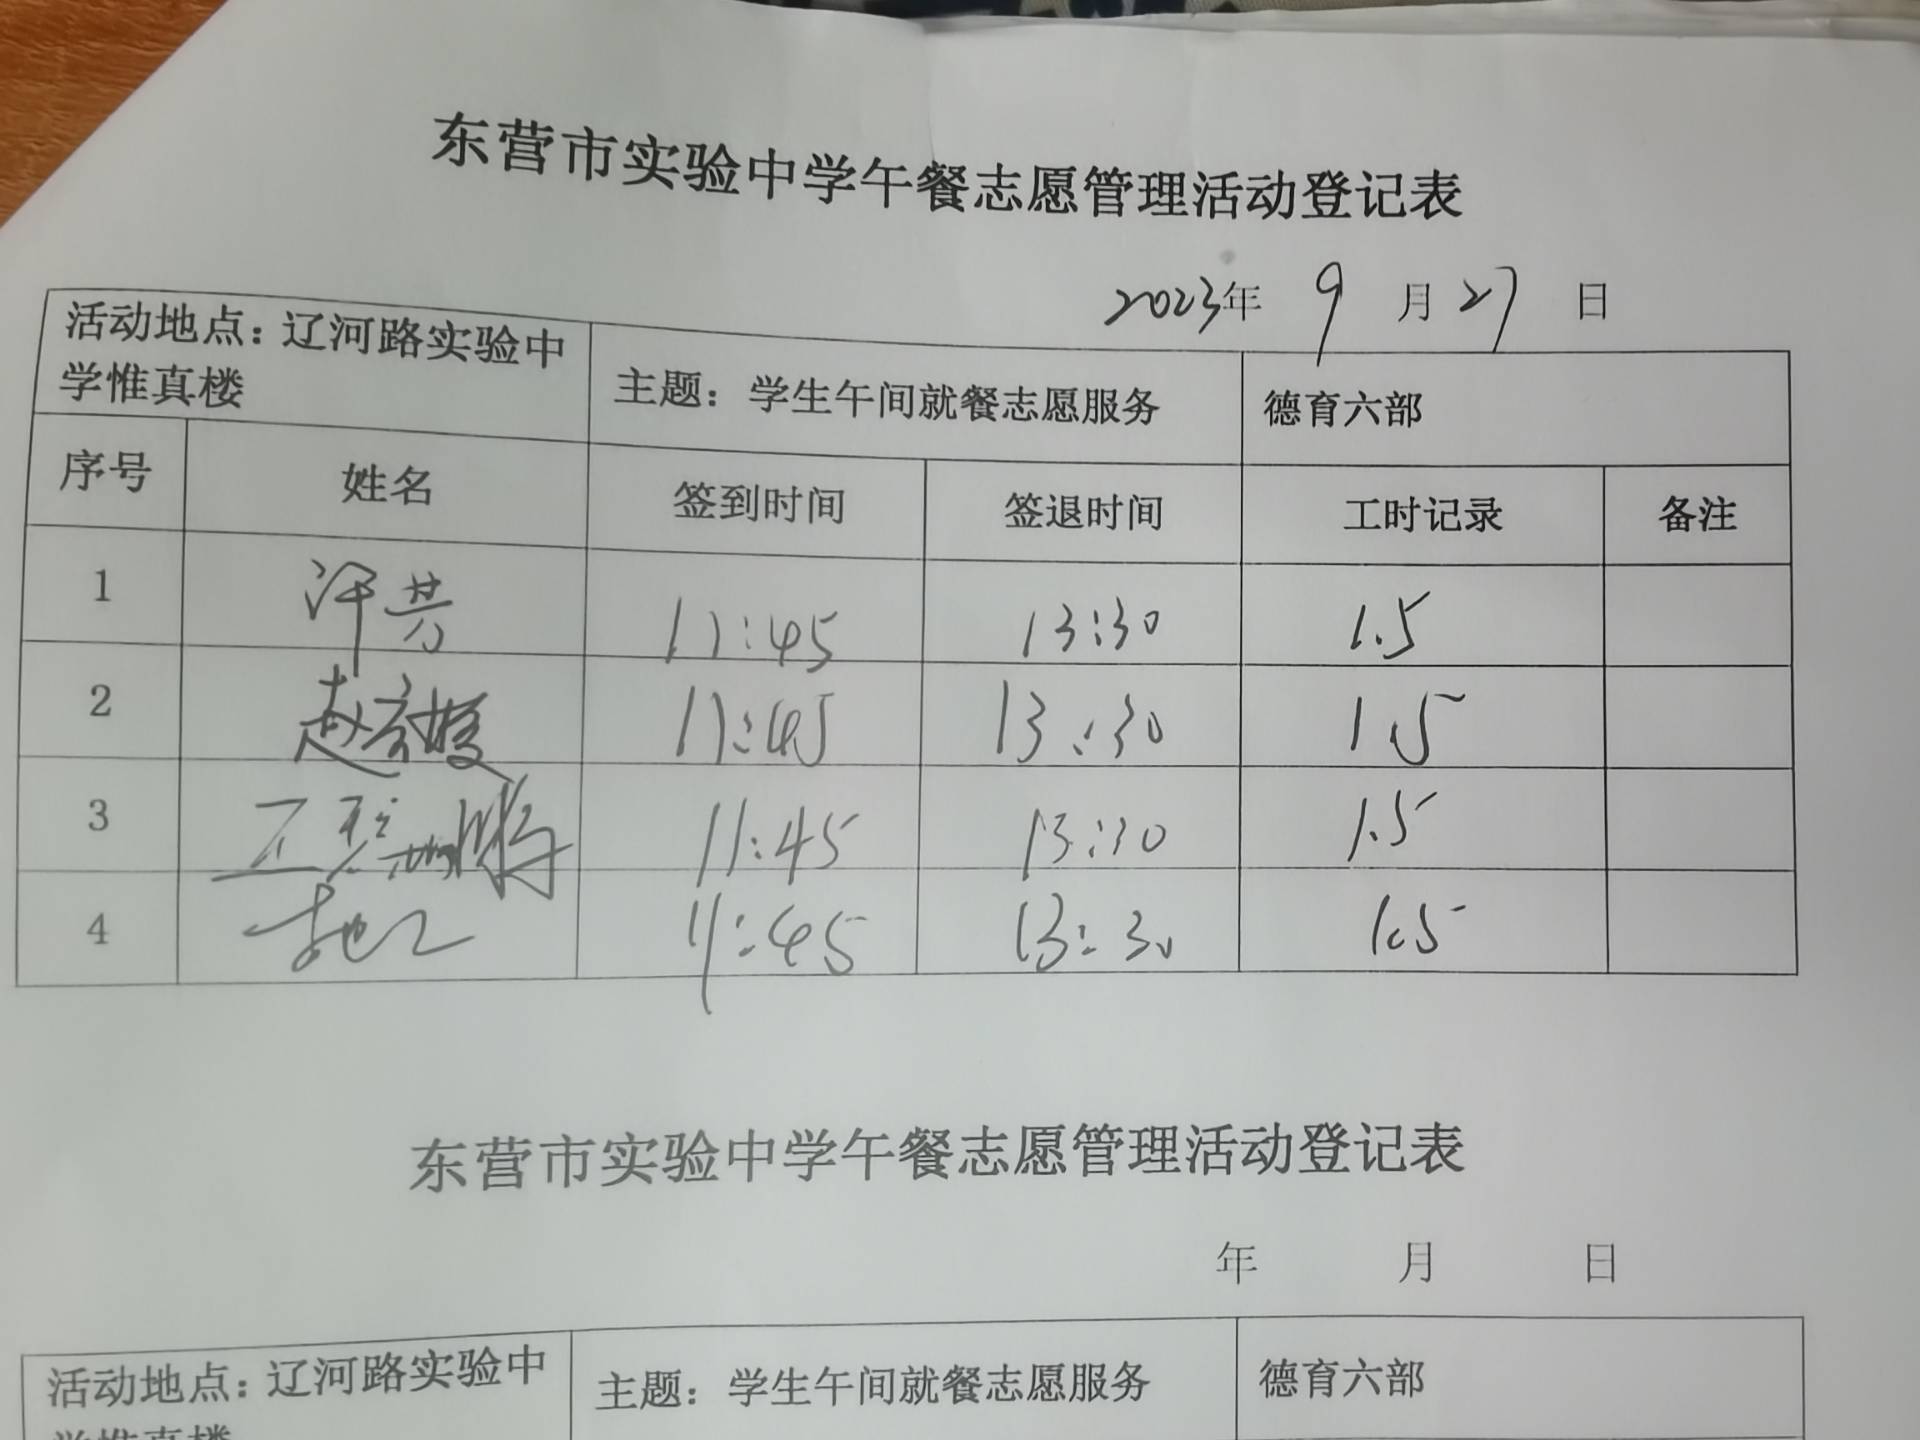 东营市实验中学午餐志愿管理活动登记表
2023年 9 月 27 日
活动地点：辽河路实验中
学惟真楼
主题：学生午间就餐志愿服务
德育六部
序号 姓名 签到时间 签退时间 工时记录 备注
1 11:45 13:30 1.5
2 11:45 13:30 1.5
3 11:45 13:30 1.5
4 11:45 13:30 1.5
东营市实验中学午餐志愿管理活动登记表
年 月 日
活动地点：辽河路实验中
学惟真楼
主题：学生午间就餐志愿服务
德育六部